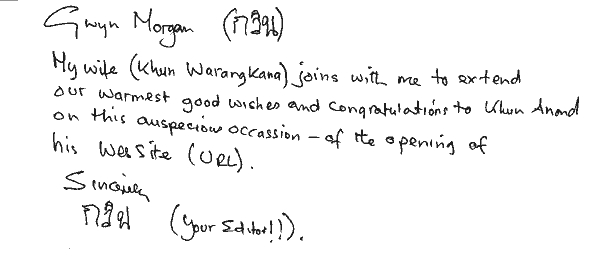 Gwyn Morgan (กวิน)
My wife (Khun Warangkana) joins with me to extend
our warmest good wishes and congratulations to Khun Anand
on this auspecious occassion – of the opening of
his Web Site (URL).
Sincerely
กวิน (Your Editor!!).